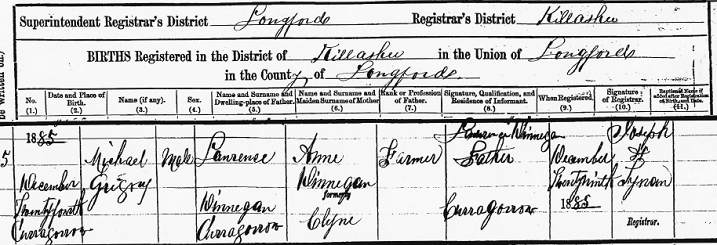 Superintendent Registrar's District Longford Registrar's District Killashee
BIRTHS Registered in the District of Killashee in the Union of Longford
in the County of Longford
No. (1.) Date and Place of Birth. (2.) Name (if any). (3.) Sex. (4.) Name and Surname and Dwelling-place of Father. (5.) Name and Surname and Maiden Surname of Mother. (6.) Rank or Profession of Father. (7.) Signature, Qualification, and Residence of Informant. (8.) When Registered. (9.) Signature of Registrar. (10.) Baptismal Name, if added after Registration of Birth, and Date. (11.)
5
1885
December
Twenty fourth
Curragorrow
Michael
Male
Laurence
Winnegan
Curragorrow
Anne
Winnegan
formerly
Clyne
Farmer
Laurence Winnegan
Father
Curragorrow
December
Twenty ninth
1885
Joseph
Tynan
Registrar.